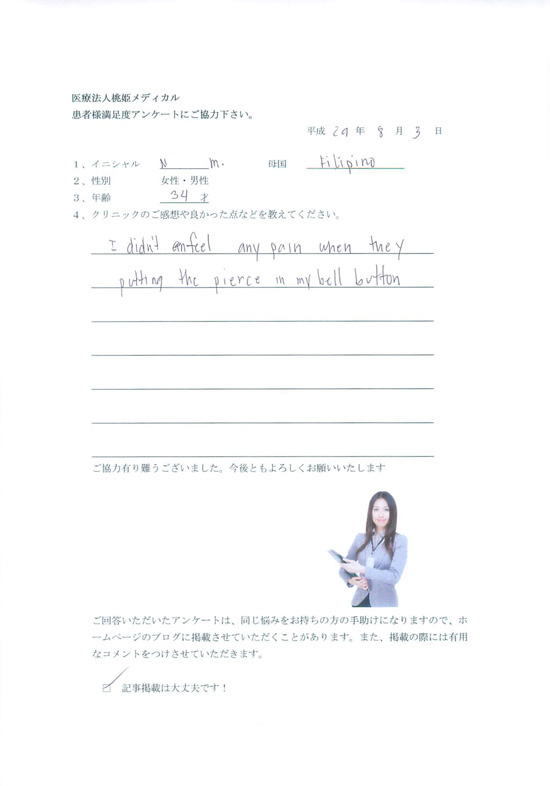 医療法人桃姫メディカル
患者様満足度アンケートにご協力下さい。
平成 29 年 8 月 3 日
1、イニシャル N m. 母国 Filipino
2、性別 女性・男性
3、年齢 34 才
4、クリニックのご感想や良かった点などを教えてください。
I didn't feel any pain when they
putting the pierce in my bell button
ご協力有り難うございました。今後ともよろしくお願いいたします
ご回答いただいたアンケートは、同じ悩みをお持ちの方の手助けになりますので、ホ
ームページのブログに掲載させていただくことがあります。また、掲載の際には有用
なコメントをつけさせていただきます。
記事掲載は大丈夫です！